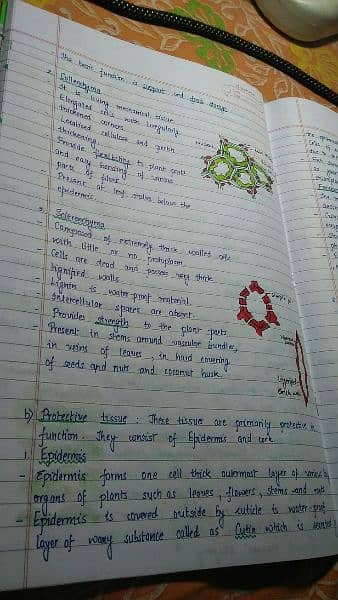 The basic function is support and food storage
2. Collenchyma
- It is living mechanical tissue.
- Elongated cells with irregularly
thickened corners.
- Localised cellulose and pectin
thickening.
- Provide flexibility to plant parts
and easy bending of various
parts of plant.
- Present at leaf stalks below the
epidermis.
3. Sclerenchyma
- Composed of extremely thick walled cells
with little or no protoplasm.
- Cells are dead and possess very thick
lignified walls.
- Lignin is water-proof material.
- Intercellular spaces are absent.
- Provides strength to the plant parts.
- Present in stems around vascular bundles,
in veins of leaves, in hard covering
of seeds and nuts and coconut husk.
Lignified
b) Protective tissue : These tissue are primarily protective in
function. They consist of Epidermis and cork.
1. Epidermis
- Epidermis forms one cell thick outermost layer of various
organs of plants such as leaves, flowers, stems and roots
- Epidermis is covered outside by cuticle is water-proof
layer of waxy substance called as Cutin which is secreted